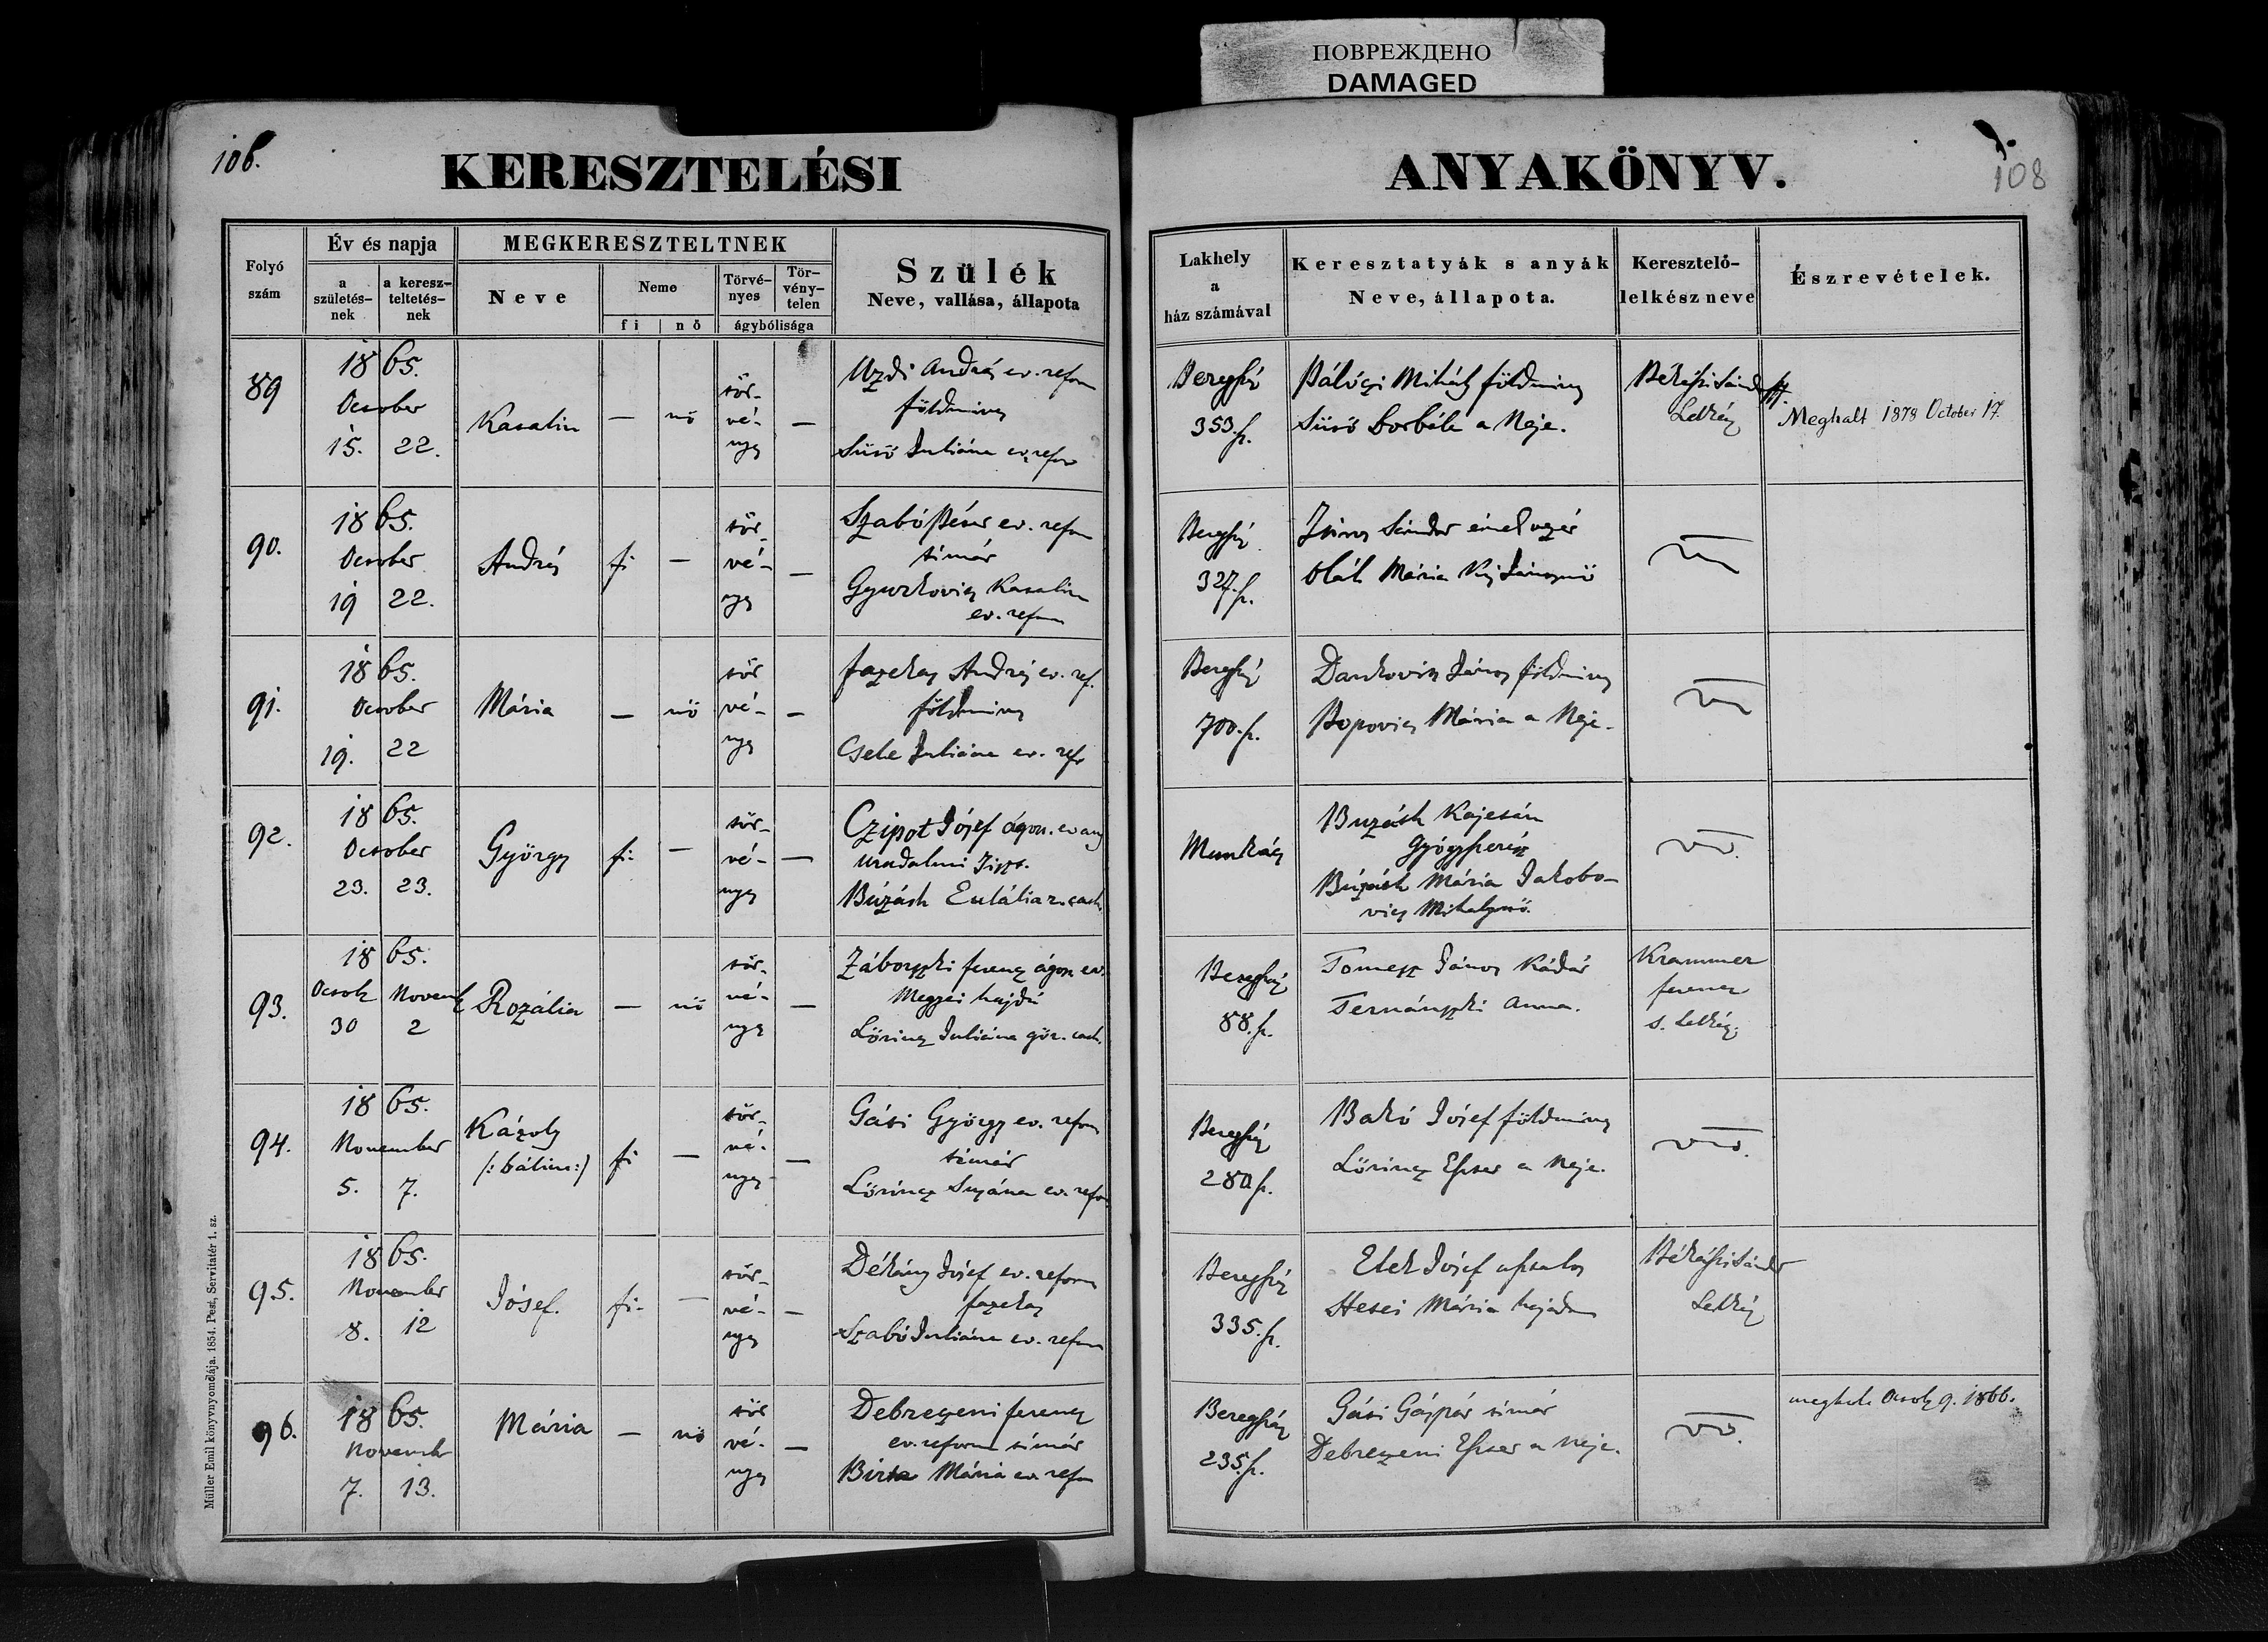 ПОВРЕЖДЕНО
DAMAGED
106.
KERESZTELÉSI
ANYAKÖNYV.
108
Folyó szám
Év és napja
a születés-nek
a keresz-teltetés-nek
MEGKERESZTELTNEK
Neve
Neme
fi
nö
Törvé-nyes
Tör-vény-telen
ágybólisága
Szülék
Neve, vallása, állapota
Lakhely
a
ház számával
Keresztatyák s anyák
Neve, állapota.
Keresztelő-
lelkész neve
Észrevételek.
89
1865.
October
15. 22.
Katalin
—
nö
tör-
vé-
nyes
—
Uzdi András ev. reform
földmives
Sütő Juliána ev. refor
Beregsz
353. sz.
Pálóczi Mihály földmives
Sütő Borbála a Neje.
Békássi Sándor
Lelkész
Meghalt 1878 October 17.
90.
1865.
October
19 22.
András
fi
—
tör-
vé-
nyes
—
Szabó Péter ev. reform
timár
Gyurkovics Katalin
ev. reform
Beregsz
327. sz.
Sándor
Oláh Mária
91.
1865.
October
19. 22
Mária
—
nö
tör
vé-
nyes
—
Fazekas András ev. ref.
földmives
Csete Juliána ev. ref
Beregsz
700. sz.
Dankovics János földmives
Popovics Mária a Neje.
92.
1865.
October
23. 23.
György
fi.
—
tör-
vé-
nyes
—
Czipot Jósef ágost. evang
uradalmi Tiszt.
Búzáth Eulália r. cath.
Munkács
Buzáth Kajetán
Gyógyszerész
Búzáth Mária Jakobo-
vics Mihalyné.
93.
1865.
Octob Novemb
30 2
Rozália
—
nö
tör-
vé-
nyes
—
Záborszki Ferencz ágost ev.
Megyei hajdú
Lörincz Juliána gör. cath.
Beregsz
88. sz.
Tomesz János Kádár
Ternánszki Anna.
Krammer
Ferencz
s. Lelkész.
94.
1865.
November
5. 7.
Károly
/:bálint:/
fi
—
tör-
vé-
nyes
—
Gáti György ev. reform
timár
Lörincz Susána ev. refor
Beregsz
280 sz.
Bakó Jósef földmives
Lörincz Eszter a Neje.
95.
1865.
November
8. 12
Jósef.
fi-
—
tör-
vé-
nyes
—
Dékány Jósef ev. reform
fazekas
Szabó Juliána ev. reform
Beregsz
335. sz.
Elek Jósef asztalos
Mária hajadon
Békássi Sándor
Lelkész
96.
1865.
Novemb
7. 13.
Mária
—
nö
tör
vé-
nyes
—
Debreczeni Ferencz
ev. reform timár
Birta Mária ev. refor
Beregsz
235. sz.
Gáti Gáspár timár
Debreczeni Eszter a neje.
meghalt Octob 9. 1866.
Müller Emil könyvnyomdája. 1854. Pest, Servitatér 1. sz.